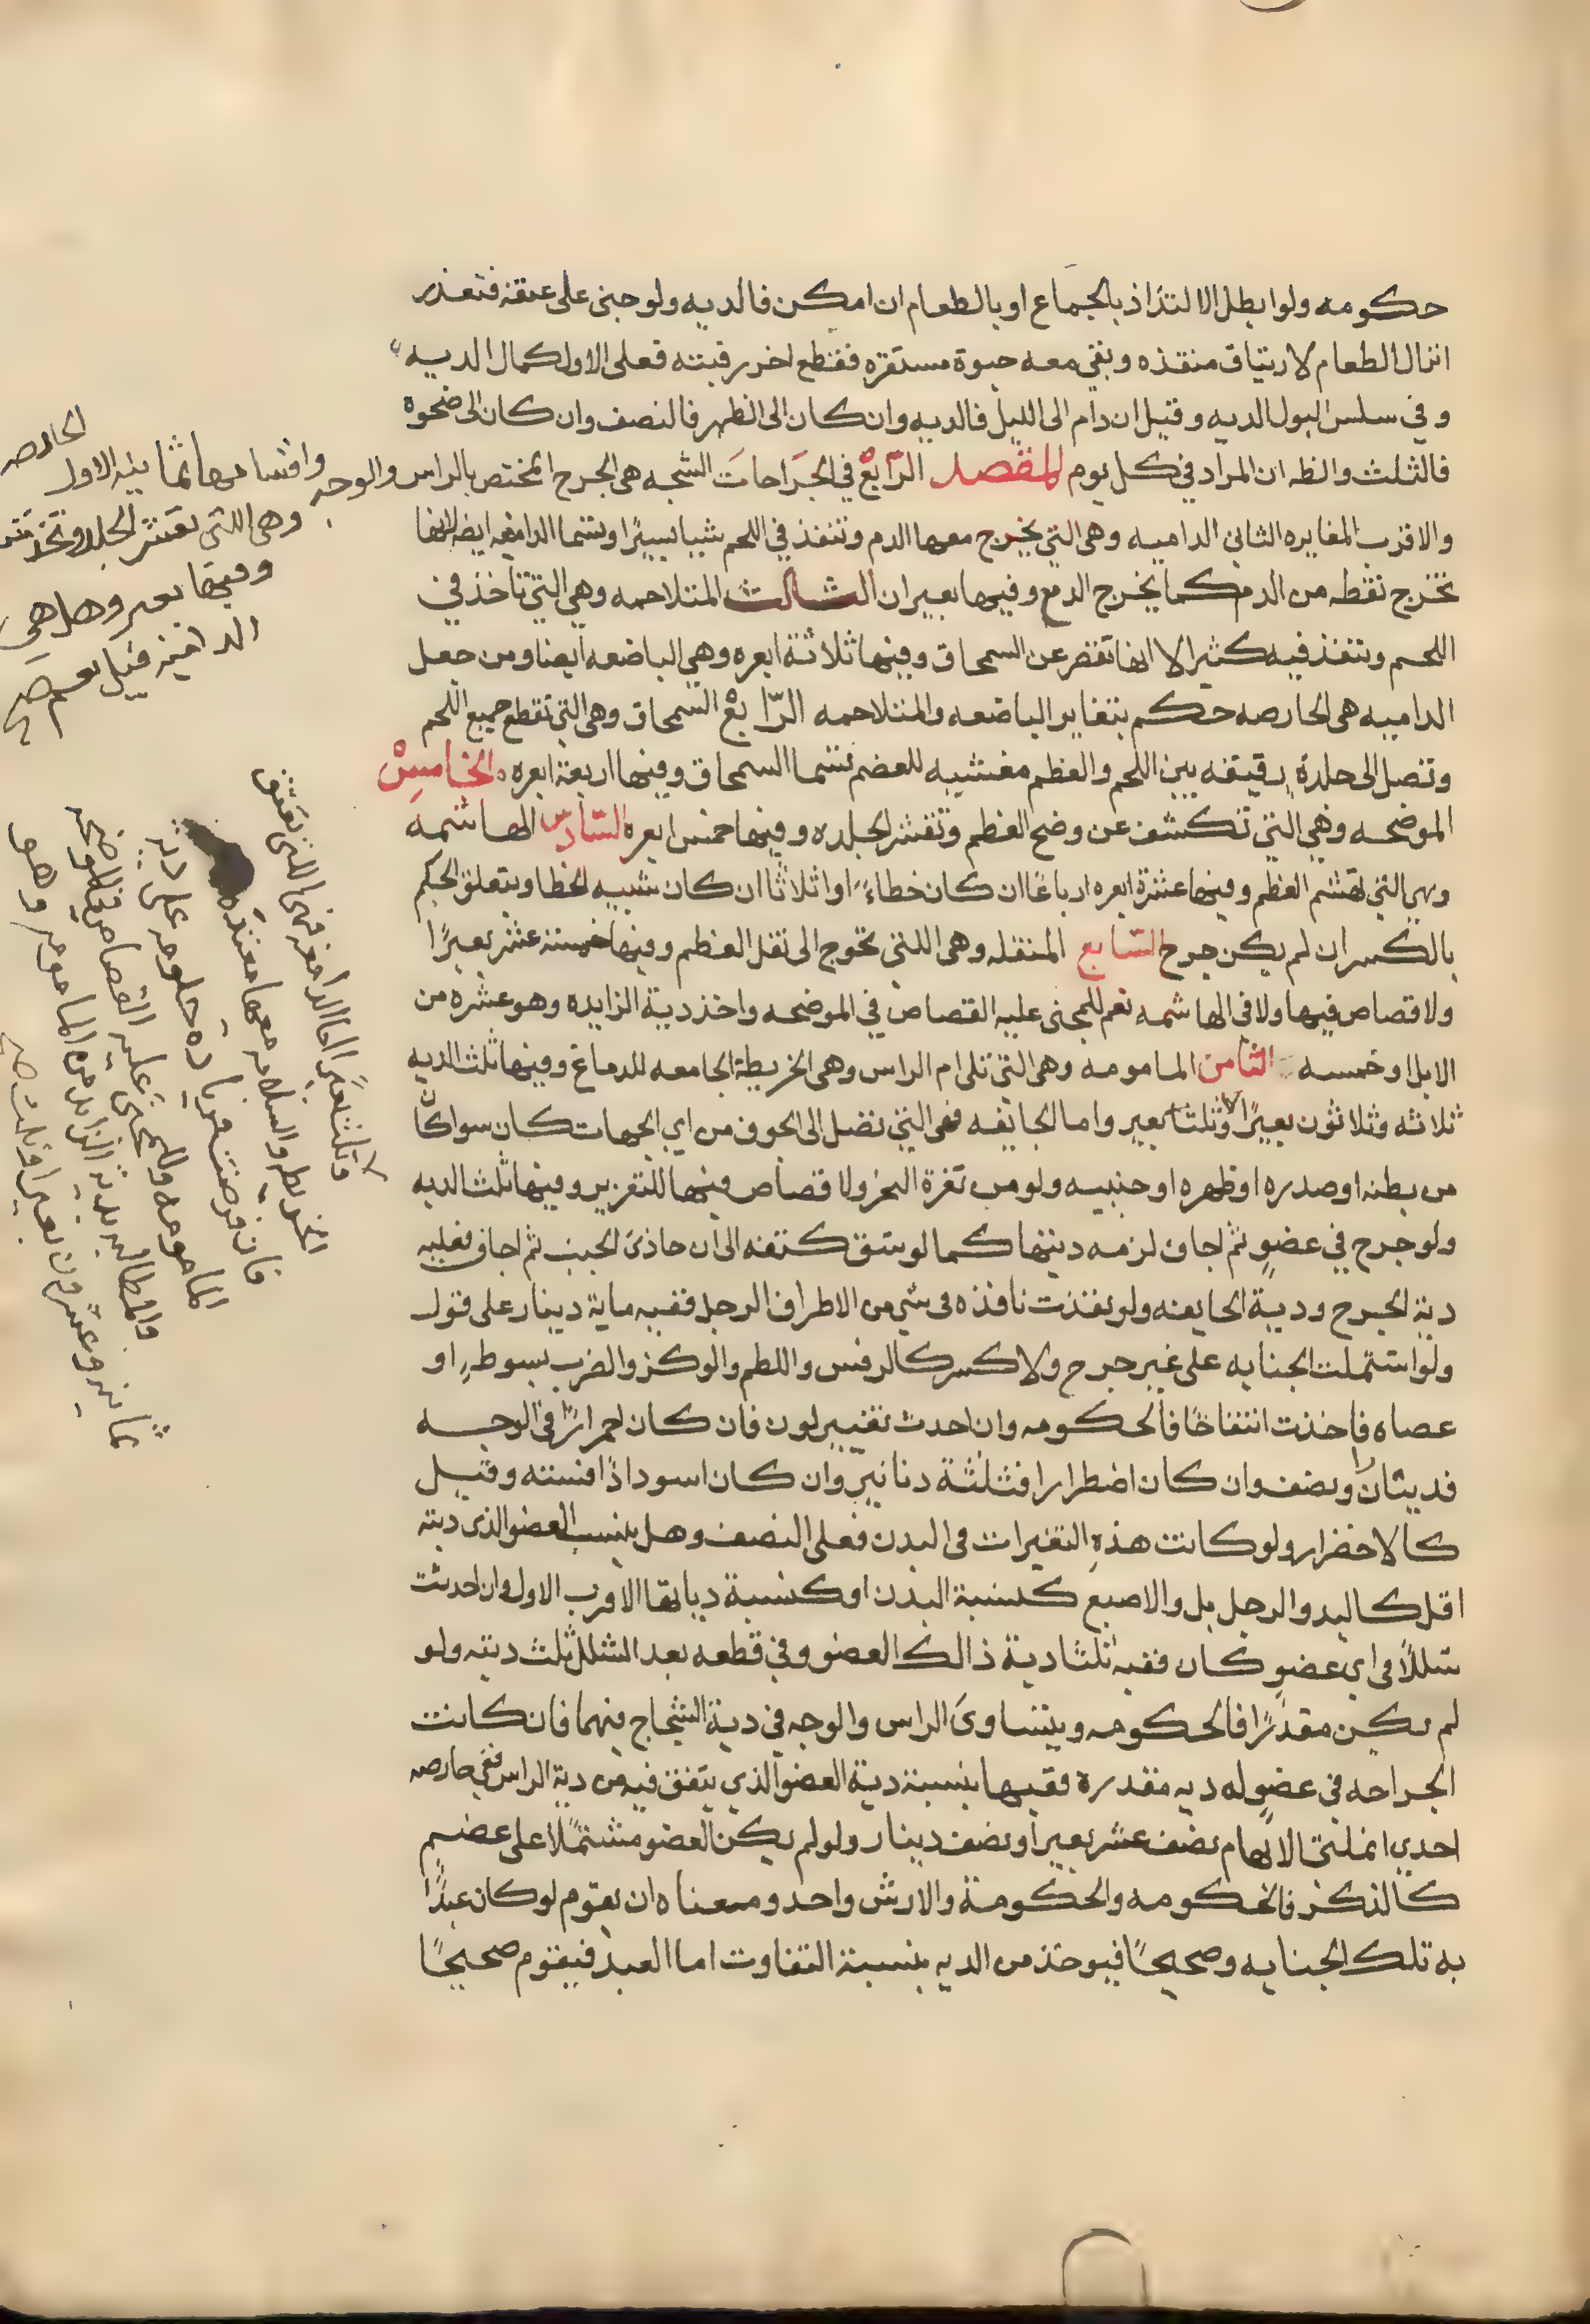 حكومه ولو ابطل الالتذاذ بالجماع او بالطعام ان امكن فالديه ولو جنى على عنقه فتعذر
انزال الطعام لارتتاق منفذه وبقي معه حيوة مستقره فقطع اخر رقبته فعلى الاول كمال الديه
وفي سلس البول الديه وقيل ان دام الى الليل فالديه وان كان الى الظهر فالنصف وان كان الى ضحوه
فالثلث والظه ان المراد في كل يوم المقصد الرابع في الجراحات الشجه هي الجرح المختص بالراس والوجه
واقسامها ثمانيه الاول الحارصه
وهي اللتي تقشر الجلد وتخدشه
وفيها بعير وهل هي
الداميه قيل نعم صح
والاقرب المغايره الثاني الداميه وهي التي يخرج معها الدم وتنفذ في اللحم شيا يسيرًا وتسما الدامعه ايضا لانها
تخرج نقطه من الدم كما يخرج الدمع وفيها بعيران الثالث المتلاحمه وهي التي تاخذ في
اللحم وتنفذ فيه كثيرا الا انها تقصر عن السمحاق وفيها ثلاثة ابعره وهي الباضعه ايضا ومن جعل
الداميه هي الحارصه حكم بتغاير الباضعه والمتلاحمه الرّابعْ السمحاق وهي التي تقطع جميع اللحم
وتصل الى جلدة رقيقه بين اللحم والعظم مغشيه للعضم تسما السمحاق وفيها اربعة ابعره الخامِسْ
الموضحه وهي التي تكشف عن وضح العظم وتقشر الجلده وفيها خمس ابعره السّادس الهاشمه
وهي التي تهشم العظم وفيها عشرة ابعره ارباعًا ان كان خطاءً او اثلاثًا ان كان شبيه الخطا ويتعلق الحكم
بالكسر ان لم يكن جرح السّابع المنقله وهي اللتي تحوج الى نقل العظم وفيها خمسة عشر بعيرًا
ولا قصاص فيها ولا في الهاشمه نعم للمجنى عليه القصاص في الموضحه واخذ دية الزايده وهو عشره من
الابل او خمسه الثامن المامومه وهي التي تلي ام الراس وهي الخريطة الجامعه للدماغ وفيها ثلث الديه
ثلاثه وثلاثون بعيرًا وثلثا بعير واما الجايفه فهي التي تصل الى الجوف من اي الجهات كان سوا كان
من بطنه او صدره او ظهره او جنبيه ولو من ثغرة النحر ولا قصاص فيها للتغرير وفيها ثلث الديه
ولو جرح في عضوٍ ثم اجاف لزمه ديتها كما لو شق كتفه الى ان حاذى الجنب ثم اجاف فعليه
دية الجرح ودية الجايفه ولو نفذت نافذه في شي من الاطراف الرجل ففيه ماية دينار على قول
ولو اشتملت الجنايه على غير جرح ولا كسر كالرفس واللطم والوكز والضرب بسوطٍ او
عصاه فاخذت انتفاخًا فالحكومه وان احدث تغيير لون فان كان احمرارًا في الوجه
فديناران ونصف وان كان اخضرارا فثلثة دنانير وان كان اسودادًا فستة وقيل
كالاخضرار ولو كانت هذهِ التغيرات في البدن فعلى النصف وهل ينسب العضو الذي ديته
اقل كاليد والرجل بل والاصبع كنسبة البدن او كنسبة دياتها الاقرب الاول وان احدثت
شللاً في اي عضوٍ كان ففيه ثلثا دية ذالك العضو وفي قطعه بعد الشلل ثلث ديته ولو
لم يكن مقدرًا فالحكومه ويتساوى الراس والوجه في دية الشجاج فيهما فان كانت
الجراحه في عضوٍ له ديه مقدرة ففيها بنسبة دية العضو الذي يتفق فيه من دية الراس ففي حارصه
احدي انملتى الابهام نصف عشر بعير او نصف دينار ولو لم يكن العضو مشتملًا على عضم
كالذكر فالحكومه والحكومة والارش واحد ومعناه ان يقوم لو كان عبدًا
به تلك الجنايه وصحيحًا فيوخذ من الديه بنسبة التفاوت اما العبد فيقوم صحيحًا
وثلث بعير اما الدامغه فهي اللتي تفتق
الخريطه والسلامه معها بعيده
فان فرضت فزياده حكومه على دية
المامومه وللمجنى عليه القصاص في الموضحه
والمطالبه بدية الزايد من المامومه وهو
ثمانيه وعشرون بعيرا وثلث صح